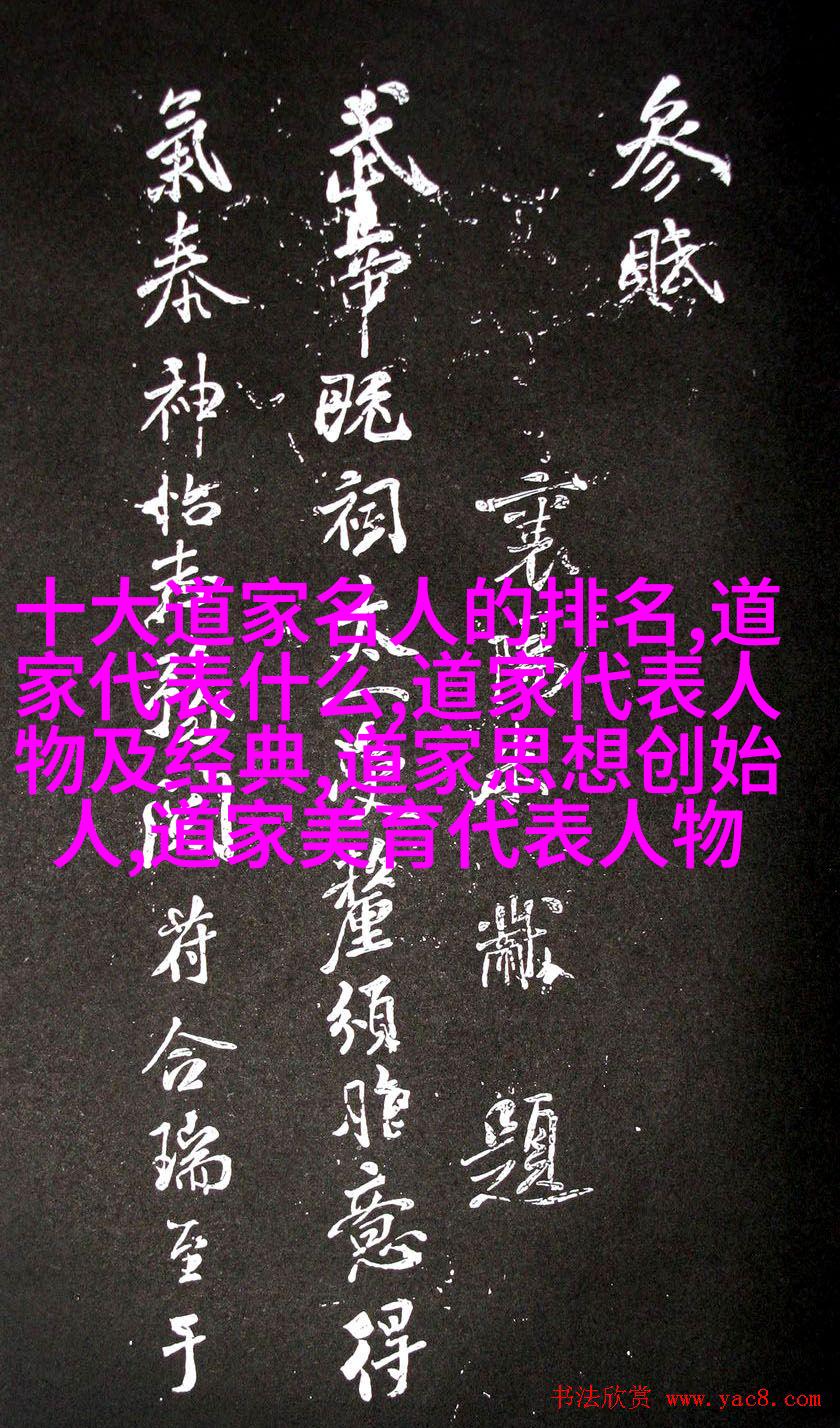 參賦
襄陽米黻題
武帝既祠太一受釐頒胙意得
氣泰神怡開符合瑞至于
十大道家名人的排名,道
家代表什么,道家代表人
物及经典,道家思想创始
人,道家美育代表人物
书法欣赏 www.yac8.com